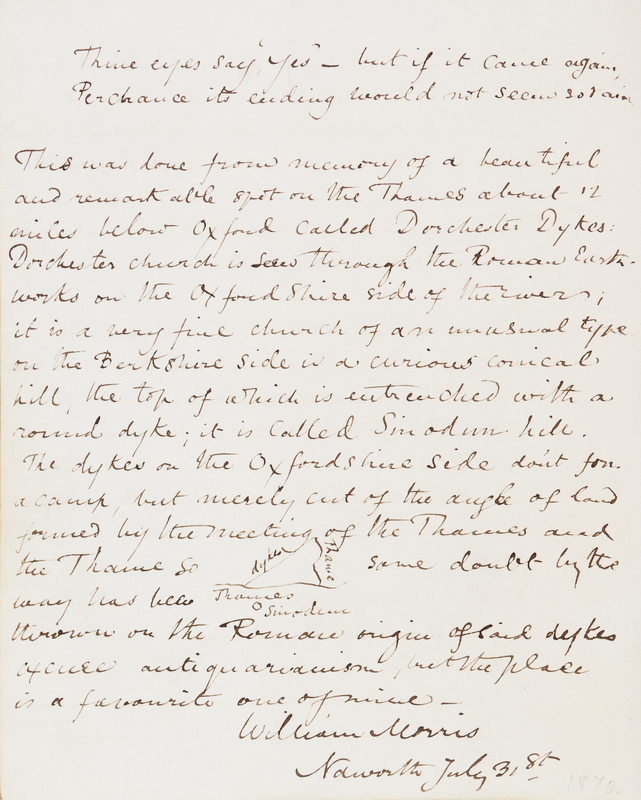 Thine eyes say, "Yes" — but if it came again,
Perchance its ending would not seem so vain
This was done from memory of a beautiful
and remarkable spot on the Thames about 12
miles below Oxford called Dorchester Dykes:
Dorchester church is seen through the Roman Earth-
works on the Oxfordshire side of the river;
it is a very fine church of an unusual type
on the Berkshire side is a curious conical
hill, the top of which is entrenched with a
round dyke; it is called Sinodun hill.
The dykes on the Oxfordshire side don't form
a camp, but merely cut of the angle of land
formed by the meeting of the Thames and
the Thame so dykes Thame some doubt by the
way has been Thames
Sinodun
thrown on the Roman origin of said dykes
excuse antiquarianism, but the place
is a favourite one of mine —
William Morris
Naworth July 31st
1870.